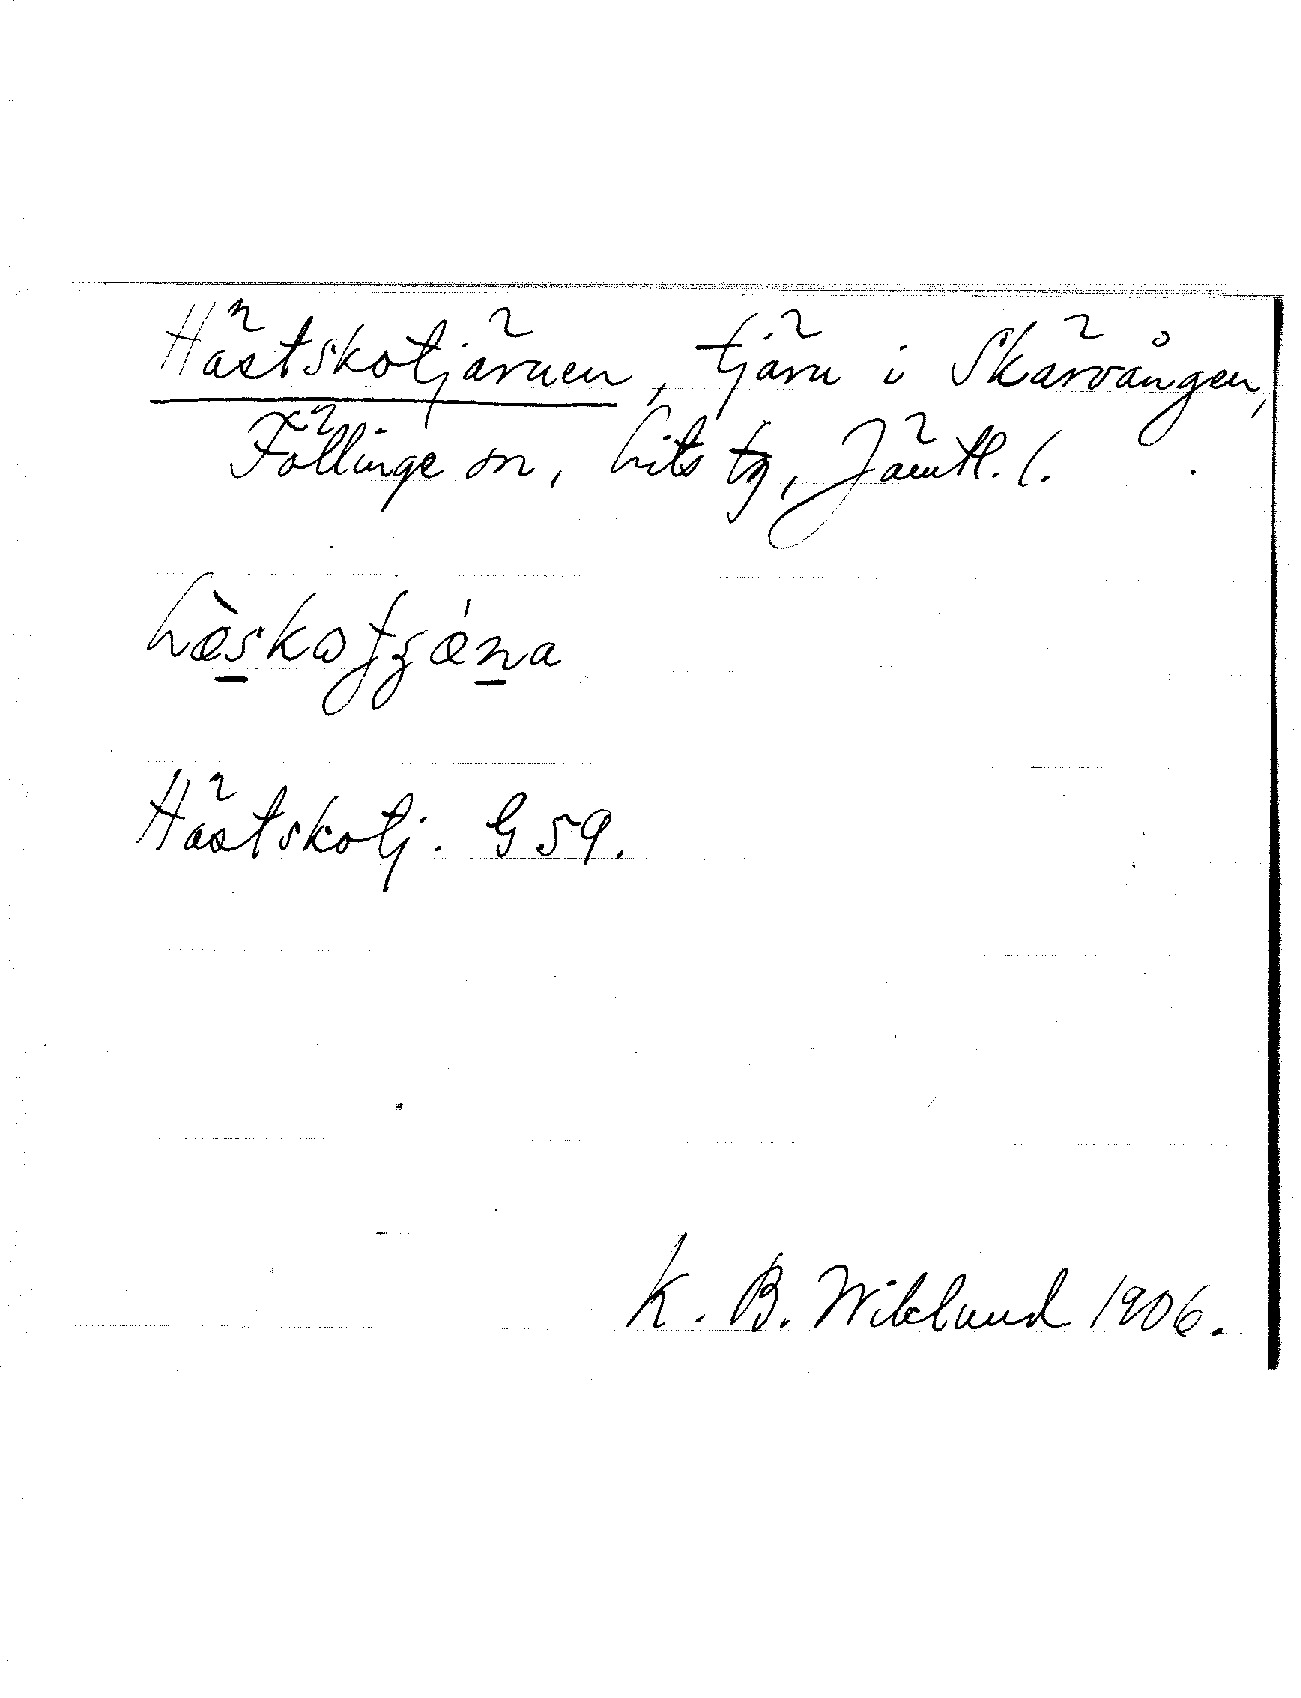 Hästskotjärnen, tjärn i Skärvången,
Föllinge sn, Lits tg, Jämtl. l.
hæ̀skotjǽna
Hästskotj. G 59.
K. B. Wiklund 1906.